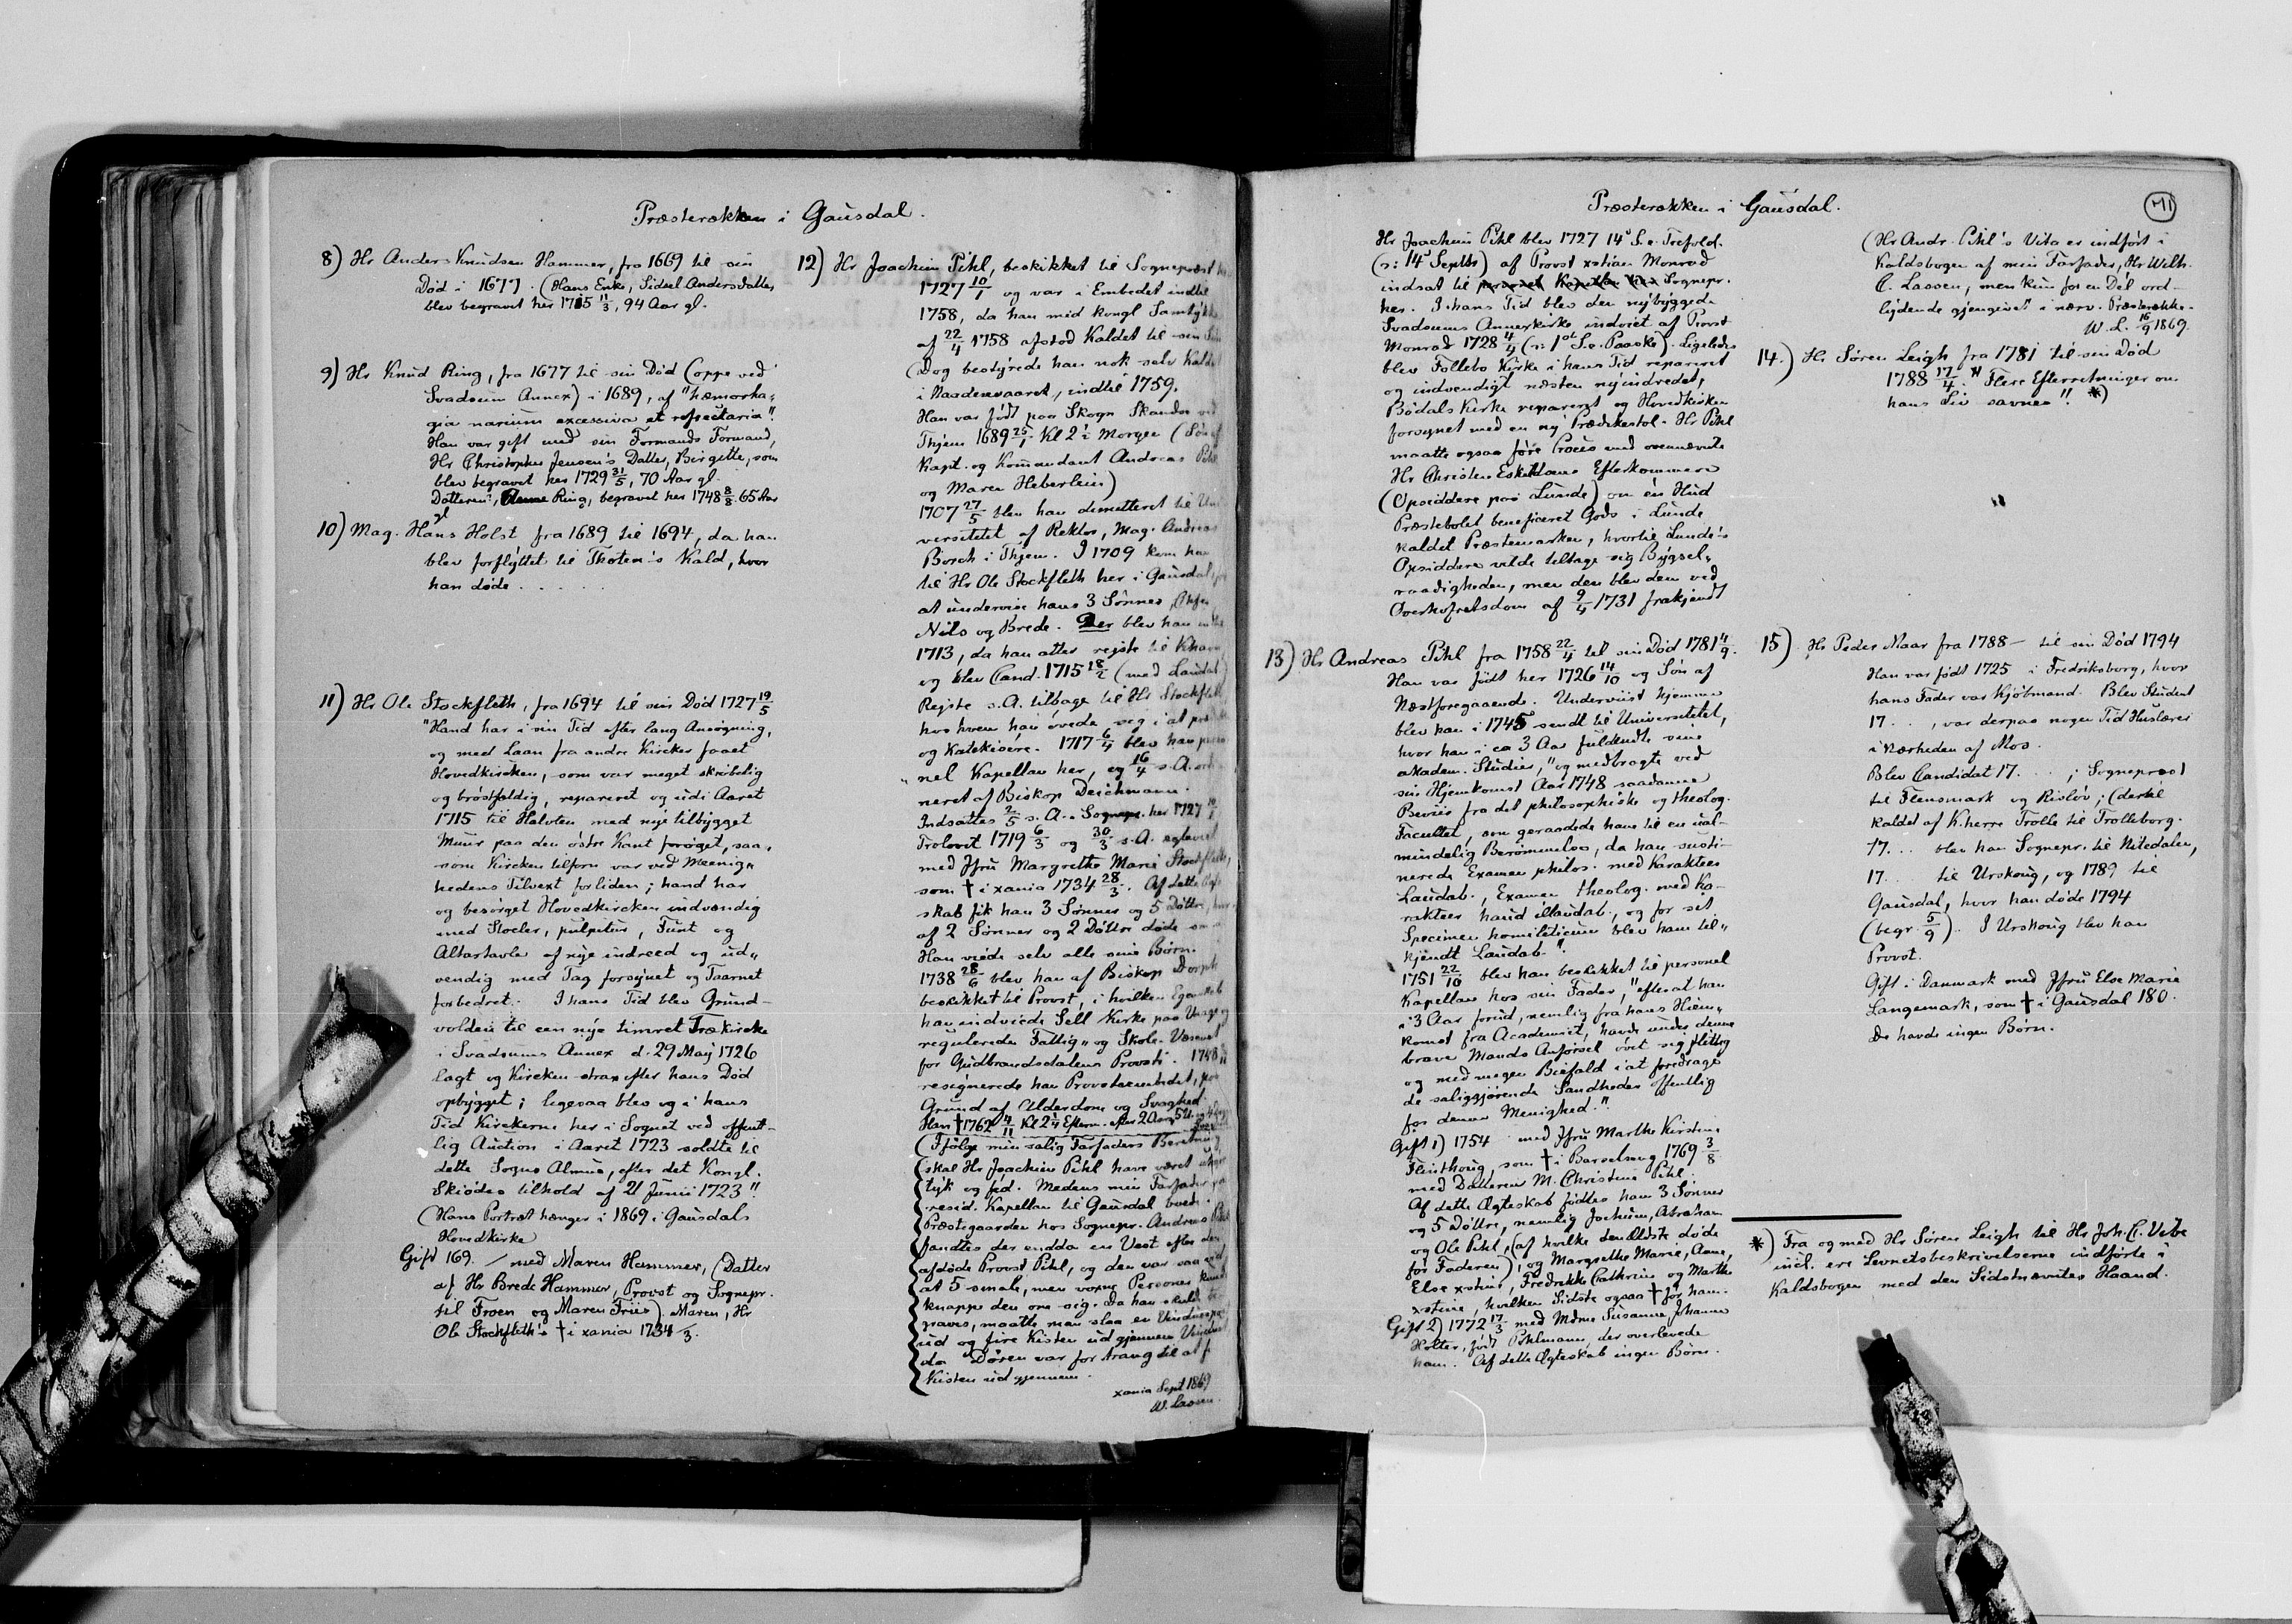 Præsterækken i Gausdal.
8) Hr Anders Knudsen Hammer, fra 1669 til sin
Død i 1677. (Hans Enke, Sidsel Andersdatter,
blev begravet her 1715 11/3, 94 Aar gl.
9) Hr Knud Ring, fra 1677 til sin Død (oppe ved
Svadsum Annex) i 1689, af "hæmorha„
gia narium excessiva et
Han var gift med sin Formands Formand,
Hr Christopher Jensen's Datter, Birgitte, som
blev begravet her 1729 31/5, 70 Aar gl.
Datteren, Ring, begravet her 1748 8/8 65 Aar
gl
10) Mag. Hans Holst fra 1689 til 1694, da han
blev forflyttet til Thoten's Kald, hvor
han døde . . . . .
11) Hr Ole Stockfleth, fra 1694 til sin Død 1727 19/5
"Hand har i sin Tid efter lang Ansøgning,
og med Laan fra andre Kircker faaet
Hovedkircken, som var meget skrøbelig
og brøstfældig, repareret og udi Aaret
1715 til Halvten med nye tilbygget
Muur paa den østre Kant forøget, saa„
som Kircken tilforn var ved Meenig„
hedens Tilvext for liden; hand har
og besørget Hovedkircken indvændig
med Stoeler, pulpitur, Funt og
Altartavle af nye indreed og ud„
vendig med Tag forsynet og Taarnet
forbedret. I hans Tid blev Grund-
volden til een nye timret Trækircke
i Svadsums Annex d. 29 Maÿ 1726
lagt og Kircken strax efter hans Død
opbygget; ligesaa blev og i hans
Tid Kirckerne her i Sognet ved offent-
lig Auction i Aaret 1723 soldte til
dette Sogns Almue, efter det Kongl.
Skiødes tilhold af 21 Junii 1723".
(Hans Portræt hænger i 1869 i Gausdals
Hovedkirke
Gift 169. med Maren Hammer, (Datter
af Hr Brede Hammer, Provst og Sognepr.
til Froen og Maren Friis). Maren, Hr
Ole Stockfleth's † i xania 1734 /3.
12) Hr Joachim Pihl, beskikket til Sognepræst
1727 10/1 og var i Embedet indtil
1758, da han med kongl Samtykke
af 22/4 1758 afstod Kaldet til sin
(Dog bestyrede han nok selv Kaldet
i Naadensaaret, indtil 1759.
Han var født paa Skogn Skandse ved
Thjem 1689 25/1 Kl 2 i Morgen (Søn af
Kapt. og Komandant Andreas Pihl
og Maren Heberlein)
1707 27/5 blev han demitteret til Uni
versitetet af Rektor, Mag. Andreas
Borch i Thjem. I 1709 kom han
til Hr Ole Stockfleth her i Gausdal, for
at undervise hans 3 Sønner,
Nils og Brede. Der blev han indtil
1713, da han atter rejste til Khavn
og blev Cand. 1715 18/2 (med Laudab.)
Rejste s.A. tilbage til Hr Stockfleth
hos hvem han øvede sig i at
og Katekisere. 1717 6/4 blev han perso
nel Kapellan her, og 16/4 s.A. ordi
neret af Biskop Deichmann.
Indsattes 2/5 s.A. Sognepr. her 1727 10/1
Trolovet 1719 6/3 og 30/3 s.A. egtevied
med Jfru Margrethe Marie Stockfleth,
som † i xania 1734 28/3. Af dette Egte
skab fik han 3 Sønner og 5 Døttre, hvor
af 2 Sønner og 2 Døttre døde
Han viede selv alle sine Børn.
1738 28/6 blev han af Biskop Dorph
beskikket til Provst, i hvilken Egenskab
han indviede Sell Kirke paa
regulerede Fattig„ og Skole-Væsenet
for Gudbrandsdalens Provsti. 1748
resignerede han Provsteembedet, paa
Grund af Alderdom og Svaghed.
Han † 1762 4/11 Kl 2 1/4 Efterm.
(Ifølge min salig Farfaders Beretning
skal Hr Joachim Pihl have været
tyk og fed. Medens min Farfader
resid. Kapellan til Gausdal boede i
Præstegaarden hos Sognepr. Andreas Pihl
fandtes der endda en Vest efter den
afdøde Provst Pihl, og den var saa vid
at 5 smale, men voxne Personer kunde
knappe den om sig. Da han skulde be
graves, maatte man slaa en Vinduespost
ud og fire Kisten ud gjennem Vinduet
da Døren var for trang til at
Kisten ud gjennem.
xania Sept 1869
W. Lassen.
Præsterækken i Gausdal.
Hr Joachim Pihl blev 1727 14de S.e. Trefold.
(ɔ: 14 Septbr) af Provst xstian Monrad
indsat til personel Kapellan hos Sognepr.
her. I hans Tid blev den nybyggede
Svadsums Annexkirke indviet af Provst
Monrad 1728 4/4 (ɔ: 1ste S.e. Paaske). Ligeledes
blev Follebo Kirke i hans Tid repareret
og indvendigt næsten nyindredet,
Bødals Kirke repareret og Hovedkirken
forsynet med en ny Prædikestol. Hr Pihl
maatte ogsaa føre Proces med ovennævnte
Hr Christen Eskildsens Efterkommere
(Opsiddere paa Lunde) om en Hud
Præstebolet beneficeret Gods i Lunde
kaldet Præstemarken, hvortil Lunde's
Opsiddere vilde tiltage sig Bygsel„
raadigheden, men den blev dem ved
Overhofretsdom af 9/4 1731 frakjendt
13) Hr Andreas Pihl fra 1758 22/4 til sin Død 1781 11/9.
Han var født her 1726 14/10 og Søn af
Næstforegaaende. Underviist hjemme
blev han i 1745 sendt til Universitetet,
hvor han i ca 3 Aar fuldendte sine
akadem. Studier, "og medbragte ved
sin Hjemkomst Aar 1748 saadanne
Beviis fra det philosophiske og theolog.
Facultet, som geraadede ham til en ual-
mindelig Berømmelse, da han susti-
nerede Examen philos. med Karakteer
Laudab., Examen theolog. med Ka-
rakteer haud illaudab., og for sit
Specimen homileticum blev ham til„
kjendt Laudab".
1751 22/10 blev han beskikket til personel
Kapellan hos sin Fader, "efterat han
i 3 Aar forud, nemlig fra hans Hiem„
komst fra Academiet, havde under denne
brave Mands Anførsel øvet sig flittig
og med megen Biefald i at foredrage
de saliggjørende Sandheder offentlig
for denne Menighed".
Gift 1) 1754 med Jfru Marthe Kirstine
Flinthoug, som † i Barselseng 1769 3/8
med Datteren M. Christine Pihl.
Af dette Ægteskab fødtes ham 3 Sønner
og 5 Døttre, nemlig Jochum, Abraham
og Ole Pihl, (af hvilke den Ældste døde
før Faderen), og Margrethe Marie, Anne,
Else xstine, Fredrikke Cathrine og Marthe
xstine, hvilken Sidste ogsaa † før ham.
Gift 2) 1772 17/3 med Mdme Susanne Johanne
Holter, født Pohlmann, der overlevede
ham. Af dette Ægteskab ingen Børn.
(Hr Andr. Pihl's Vita er indført i
Kaldsbogen af min Farfader, Hr Wilh.
C. Lassen, men kun for en Del ord-
lydende gjengivet i nærv. Præsterække.
W. L. 16/9 1869.
14.) Hr Søren Leigh fra 1781 til sin Død
1788 17/4. "Flere Efterretninger om
hans Liv savnes"! *)
15) Hr Peder Naar fra 1788 – til sin Død 1794
Han var født 1725 i Fredriksborg, hvor
hans Fader var Kjøbmand. Blev Student
17. . , var derpaa nogen Tid Huslærer
i Nærheden af Mos.
Blev Candidat 17. . . ; Sognepræst
til Flensmark og Risløv; (dertil
kaldet af K.herre Trolle til Trolleborg.
17. . . blev han Sognepr. til Nitedalen,
17. . til Urskoug, og 1789 til
Gausdal, hvor han døde 1794
(begr. 5/9). I Urskoug blev han
Provst.
Gift i Danmark med Jfru Else Marie
Langemark, som † i Gausdal 180 .
De havde ingen Børn.
*) Fra og med Hr Søren Leigh til Hr Joh. C. Vibe
incl. ere Levnetsbeskrivelserne indførte i
Kaldsbogen med den Sidstnævntes Haand.